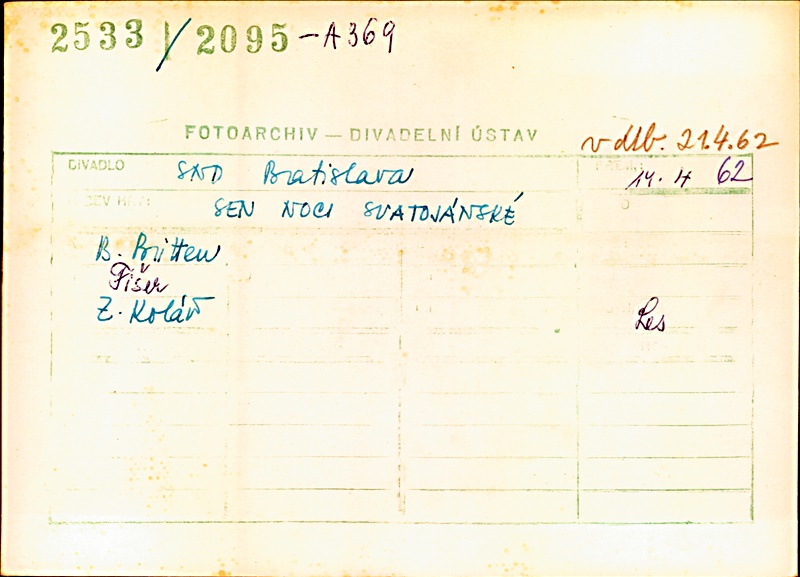 2533 / 2095 - A369
FOTOARCHIV — DIVADELNÍ ÚSTAV
v dlb. 21.4.62
DIVADLO SND Bratislava 14. 4 62
SEN NOCI SVATOJÁNSKÉ
B. Britten
Fišer
Z. Kolář Les